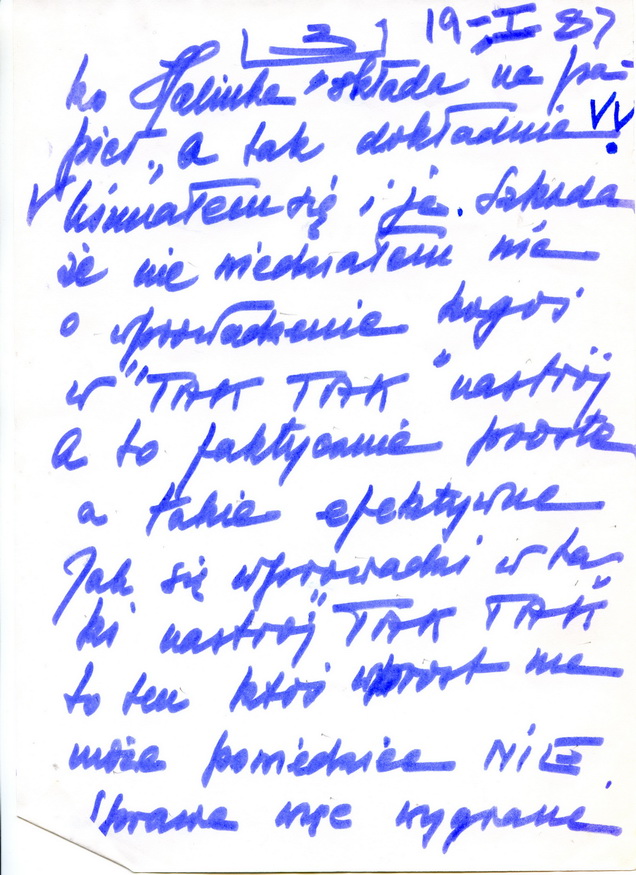 3 19-I 87
ko Halinka składa na pa-
pier", a tak dokładnie !
Uśmiałem się i ja. Szkoda
że nie wiedziałem nic
o wprowadzenie kogoś
w "TAK TAK" nastrój
A to faktycznie proste
a takie efektywne
Jak się wprowadzi w ta-
ki nastrój "TAK TAK"
to ten ktoś wprost nie
może powiedzieć NIE.
Sprawa więc wygrana